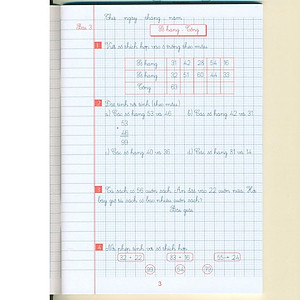 Thứ ngày tháng năm
Bài 2
Số hạng - Tổng
1 Viết số thích hợp vào ô trống theo mẫu:
Số hạng 31 42 28 54 16
Số hạng 32 51 60 44 33
Tổng 63
2 Đặt tính rồi tính (theo mẫu):
a) Các số hạng 53 và 46 b) Các số hạng 42 và 31
53
+
46
99
c) Các số hạng 40 và 36 d) Các số hạng 81 và 14
3 Tủ sách có 56 cuốn sách. An đặt vào 22 cuốn nữa. Hỏi
bây giờ tủ sách có bao nhiêu cuốn sách?
Bài giải
4 Nối phép tính với số thích hợp:
32 + 22 83 + 16 55 + 24
99 54 79
3